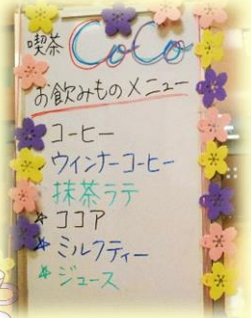 喫茶 CoCo
お飲みものメニュー
コーヒー
ウインナーコーヒー
抹茶ラテ
☆ ココア
☆ ミルクティー
☆ ジュース